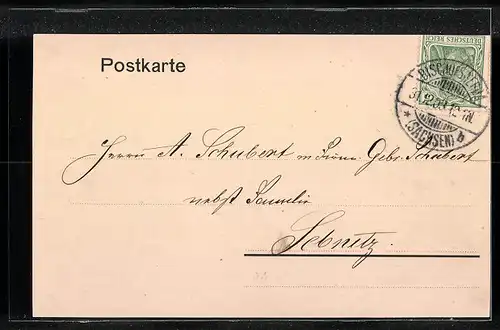 DEUTSCHES REICH
BISCHOFSWERDA
31.12.
(SACHSEN) b
Postkarte
Herrn A. Schubert in Firma Gebr. Schubert
nebst Familie
Sebnitz.